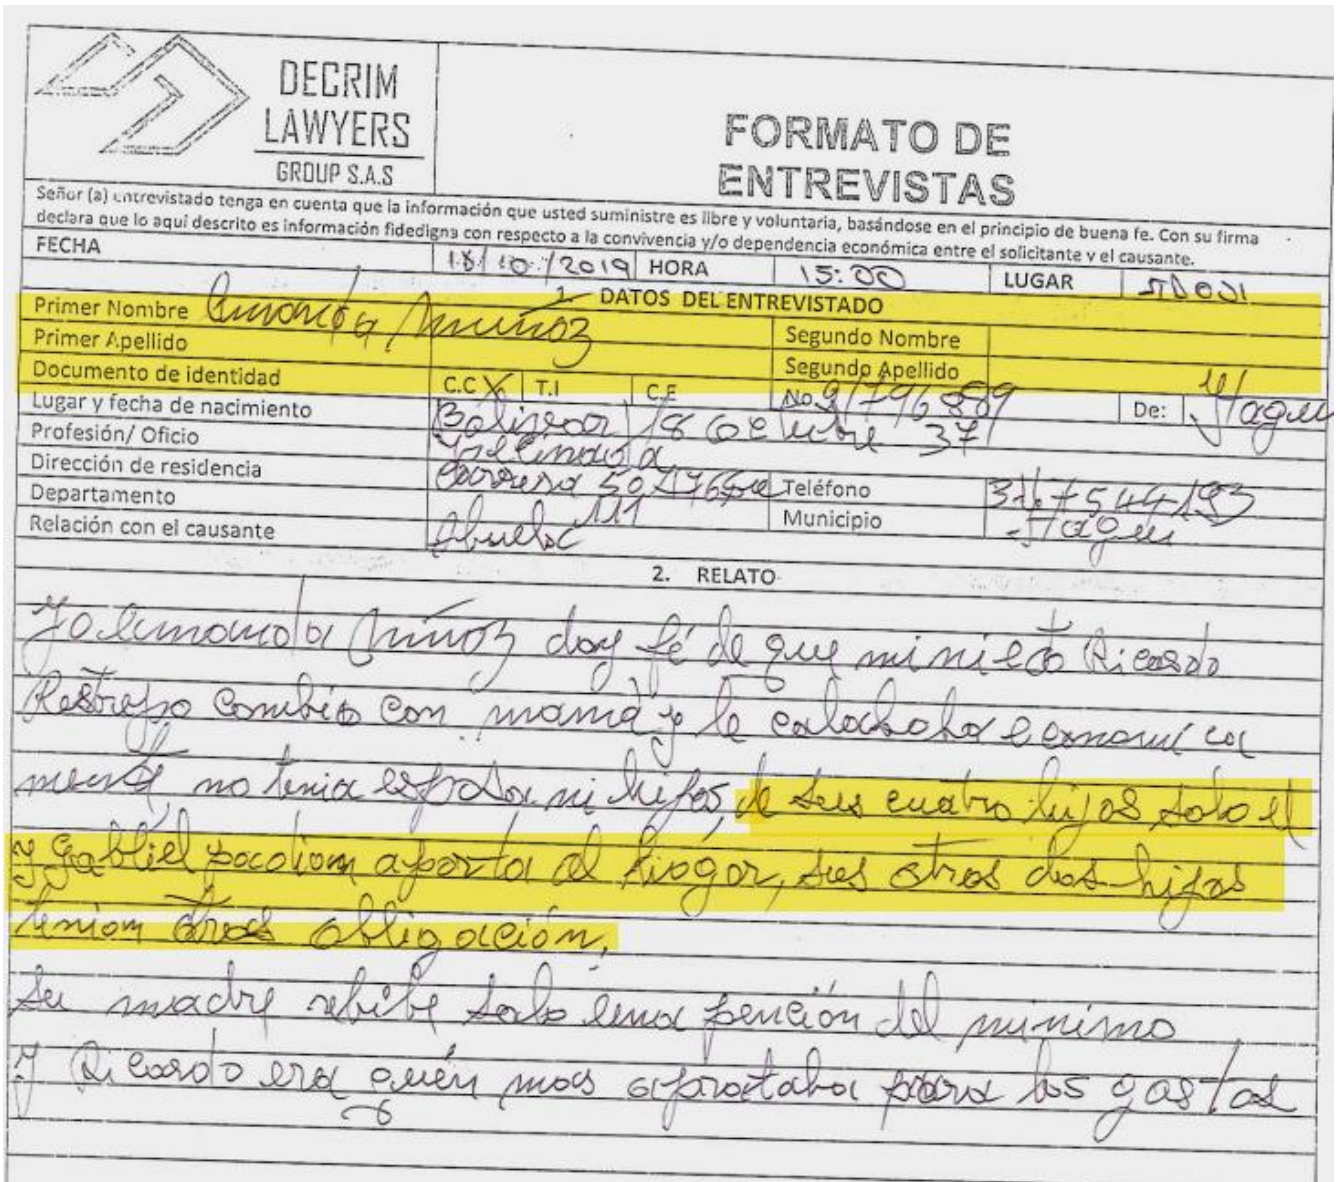 DECRIM
LAWYERS
GROUP S.A.S
FORMATO DE
ENTREVISTAS
Señor (a) entrevistado tenga en cuenta que la información que usted suministre es libre y voluntaria, basándose en el principio de buena fe. Con su firma
declara que lo aquí descrito es información fidedigna con respecto a la convivencia y/o dependencia económica entre el solicitante y el causante.
FECHA 18/10/2019 HORA 15:00 LUGAR
1. DATOS DEL ENTREVISTADO
Primer Nombre Amanda Muñoz Segundo Nombre
Primer Apellido Segundo Apellido
Documento de identidad C.C X T.I C.E No. De: Itagui
Lugar y fecha de nacimiento Bolivar 18 37
Profesión/ Oficio
Dirección de residencia Carrera Teléfono
Departamento 111 Municipio Itagui
Relación con el causante Abuela
2. RELATO
Yo Amanda Muñoz doy fé de que mi nieto Ricardo
Restrepo con mamá y le economica
mente, no tenia esposa ni hijos, de sus cuatro hijos solo el
y Gabliel aporta al hogar, sus otros dos hijos
tenian otras obligación,
su madre rebibe solo una pención del minimo
y Ricardo era quén mas para los gastos